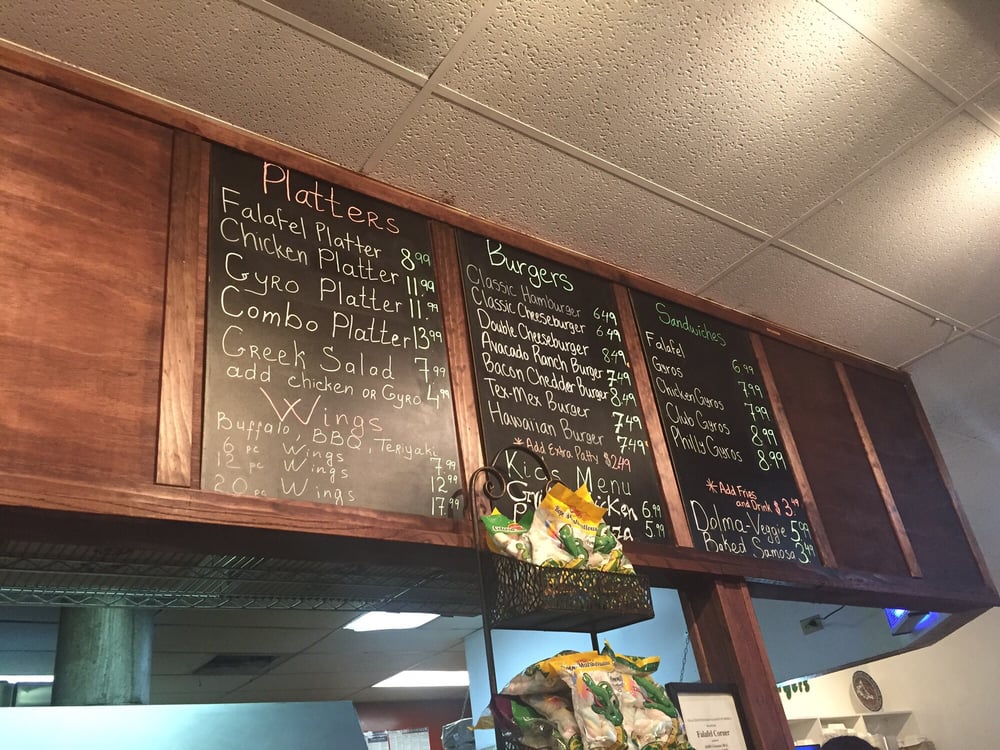 Platters
Falafel Platter 8.99
Chicken Platter 11.99
Gyro Platter 11.99
Combo Platter 13.99
Greek Salad 7.99
add chicken or Gyro 4.99
Wings
Buffalo, BBQ, Teriyaki
6 pc Wings 7.99
12 pc Wings 12.99
20 pc Wings 17.99
Burgers
Classic Hamburger 6.49
Classic Cheeseburger 6.49
Double Cheeseburger 8.49
Avacado Ranch Burger 7.49
Bacon Chedder Burger 8.49
Tex-Mex Burger 7.49
Hawaiian Burger 7.49
*Add Extra Patty $2.49
Kids Menu
6.99
5.99
Sandwiches
Falafel 6.99
Gyros 7.99
Chicken Gyros 7.99
Club Gyros 8.99
Philly Gyros 8.99
*Add Fries
and Drink $3.49
Dolma-Veggie 5.99
Baked Samosa 3.49
Falafel Corner